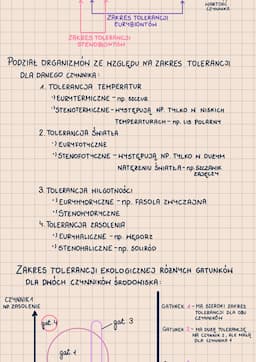 WARTOŚĆ
CZYNNIKA
ZAKRES TOLERANCJI
EURYBIONTÓW
ZAKRES TOLERANCJI
STENOBIONTÓW
PODZIAŁ ORGANIZMÓW ZE WZGLĘDU NA ZAKRES TOLERANCJI
DLA DANEGO CZYNNIKA:
1. TOLERANCJA TEMPERATUR
*) EURYTERMICZNE - np.
*) STENOTERMICZNE - WYSTĘPUJĄ NP. TYLKO W NISKICH
TEMPERATURACH - np. LIS POLARNY
2. TOLERANCJA ŚWIATŁA
*) EURYFOTYCZNE
*) STENOFOTYCZNE - WYSTĘPUJĄ NP. TYLKO W DUŻYM
NATĘŻENIU ŚWIATŁA - np. SZCZAWIK
ZAJĘCZY
3. TOLERANCJA WILGOTNOŚCI
*) EURYHYDRYCZNE - np. FASOLA ZWYCZAJNA
*) STENOHYDRYCZNE
4. TOLERANCJA ZASOLENIA
*) EURYHALICZNE - np. WĘGORZ
*) STENOHALICZNE - np. SOLIRÓD
ZAKRES TOLERANCJI EKOLOGICZNEJ RÓŻNYCH GATUNKÓW
DLA DWÓCH CZYNNIKÓW ŚRODOWISKA:
CZYNNIK 1
NP. ZASOLENIE
gat. 2
gat. 3
gat. 1
GATUNEK 1 - MA SZEROKI ZAKRES
TOLERANCJI DLA OBU
CZYNNIKÓW
GATUNEK 2 - MA DUŻĄ TOLERANCJĘ
NA CZYNNIK 2, ALE MAŁĄ
DLA CZYNNIKA 1